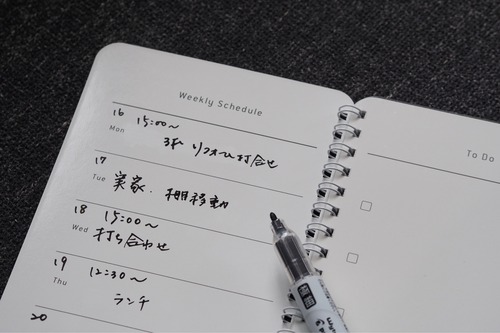 Weekly Schedule
16 15:00〜
Mon
リフォーム打合せ
17
Tue 実家、棚移動
18 15:00〜
Wed 打ち合わせ
19 12:30〜
Thu ランチ
20
To Do